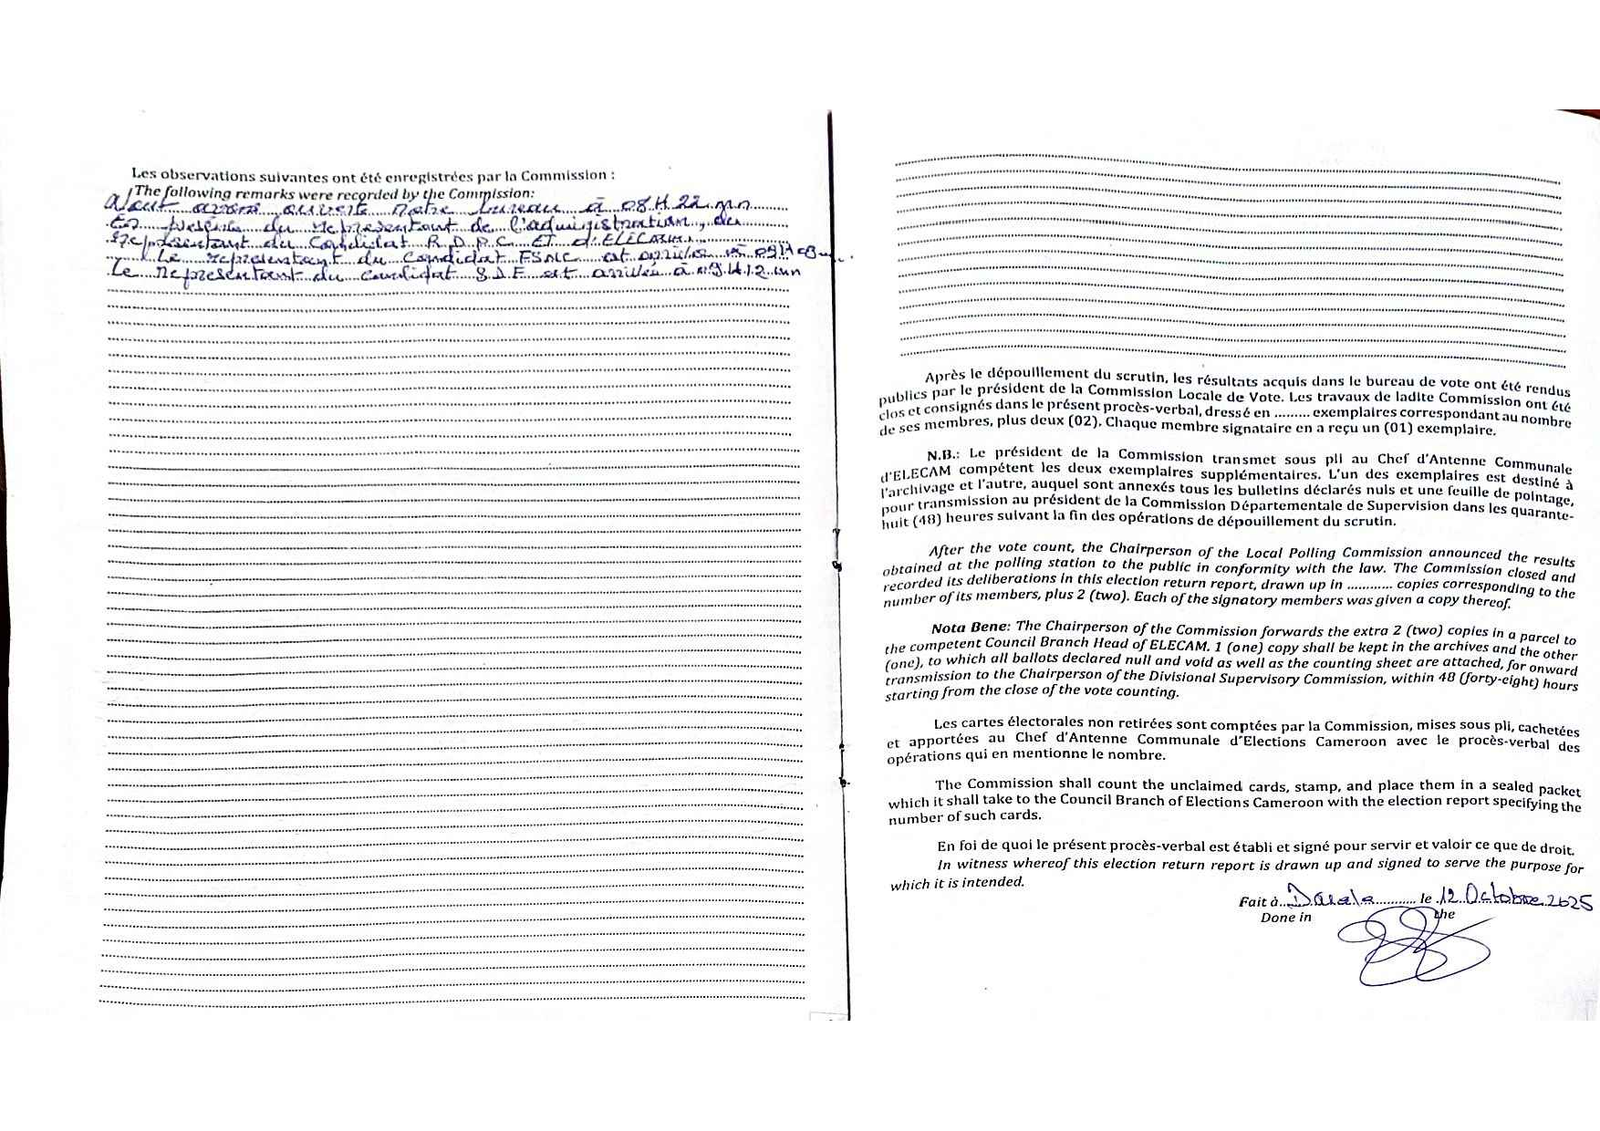 Les observations suivantes ont été enregistrées par la Commission :
The following remarks were recorded by the Commission:
avons ouverts notre bureau à 08 H 22 mn
En du représentant de l'administration, du
représentant du Candidat R.D.P.C ET d'ELECAM.
Le représentant du Candidat FSNC est arrivée à 09 H 03
Le représentant du candidat S.D.F est arrivée à 09 H 12 mn
Après le dépouillement du scrutin, les résultats acquis dans le bureau de vote ont été rendus
publics par le président de la Commission Locale de Vote. Les travaux de ladite Commission ont été
clos et consignés dans le présent procès-verbal, dressé en ......... exemplaires correspondant au nombre
de ses membres, plus deux (02). Chaque membre signataire en a reçu un (01) exemplaire.
N.B.: Le président de la Commission transmet sous pli au Chef d'Antenne Communale
d'ELECAM compétent les deux exemplaires supplémentaires. L'un des exemplaires est destiné à
l'archivage et l'autre, auquel sont annexés tous les bulletins déclarés nuls et une feuille de pointage,
pour transmission au président de la Commission Départementale de Supervision dans les quarante-
huit (48) heures suivant la fin des opérations de dépouillement du scrutin.
After the vote count, the Chairperson of the Local Polling Commission announced the results
obtained at the polling station to the public in conformity with the law. The Commission closed and
recorded its deliberations in this election return report, drawn up in ........... copies corresponding to the
number of its members, plus 2 (two). Each of the signatory members was given a copy thereof.
Nota Bene: The Chairperson of the Commission forwards the extra 2 (two) copies in a parcel to
the competent Council Branch Head of ELECAM. 1 (one) copy shall be kept in the archives and the other
(one), to which all ballots declared null and void as well as the counting sheet are attached, for onward
transmission to the Chairperson of the Divisional Supervisory Commission, within 48 (forty-eight) hours
starting from the close of the vote counting.
Les cartes électorales non retirées sont comptées par la Commission, mises sous pli, cachetées
et apportées au Chef d'Antenne Communale d'Elections Cameroon avec le procès-verbal des
opérations qui en mentionne le nombre.
The Commission shall count the unclaimed cards, stamp, and place them in a sealed packet
which it shall take to the Council Branch of Elections Cameroon with the election report specifying the
number of such cards.
En foi de quoi le présent procès-verbal est établi et signé pour servir et valoir ce que de droit.
In witness whereof this election return report is drawn up and signed to serve the purpose for
which it is intended.
Fait à Douala le 12 Octobre 2025
Done in the